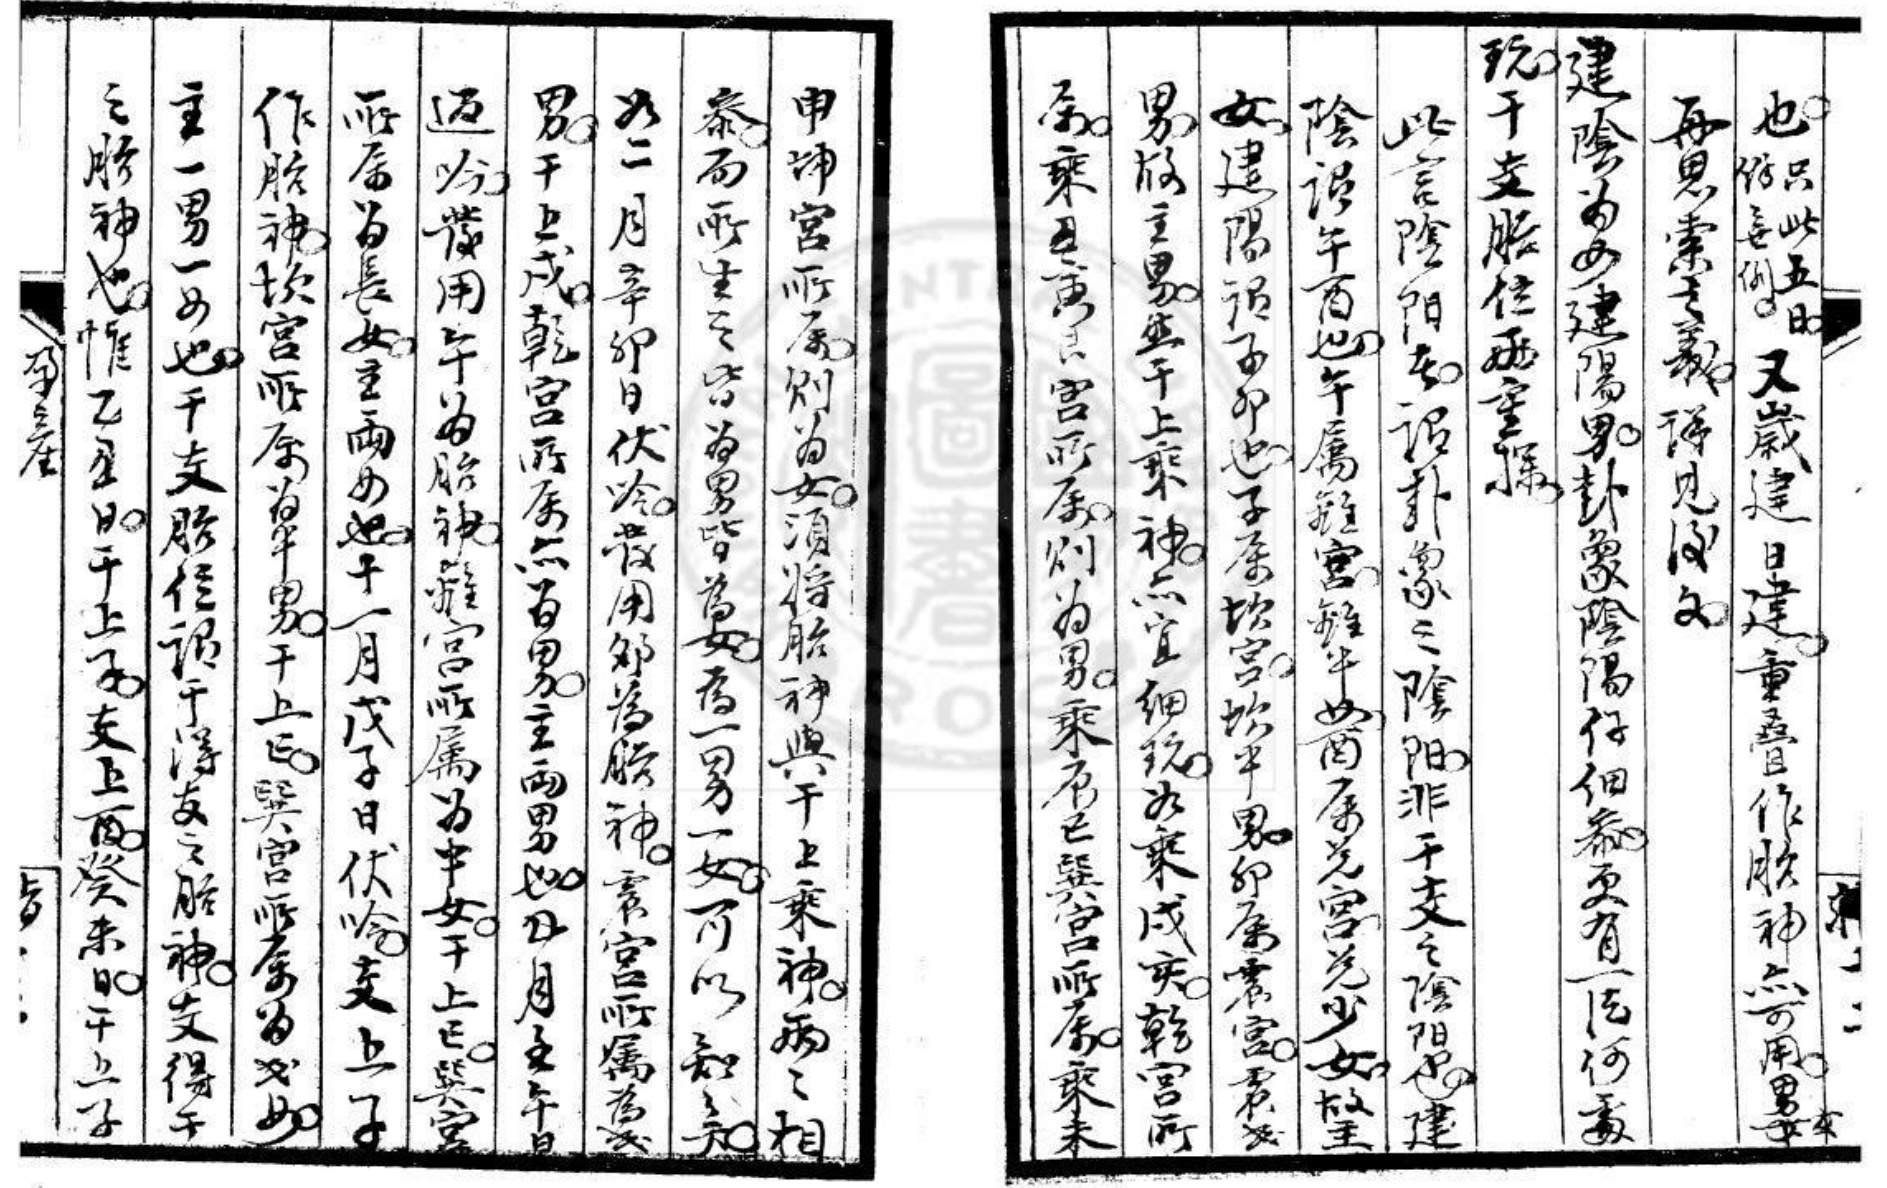 也只此五日餘無例又歲建日建重疊作胎神亦可用男女
再思索之義詳見後文
建陰為女建陽男卦象陰陽仔細參更有一法何處
玩干支胎位兩重探
此言陰陽者謂卦象之陰陽非干支之陰陽也建
陰謂午酉也午屬離宮離中女酉屬兌宮兌少女故主
女建陽謂子卯也子属坎宮坎中男卯属震宮震長
男故主男然干上乘神亦宜細玩如乘戌亥乾宮所
属乘丑寅艮宮所属則为男乘辰巳巽宮所属乘未
申坤宮所属則为女須將胎神與干上乘神兩之相
參而所生之皆为男皆為女為一男一女可以知之矣
如二月辛卯日伏吟發用卯為胎神震宮所屬為長
男干上戌乾宮所属亦为男主兩男也五月壬午日
返吟發用午为胎神離宮所属为中女干上巳巽宮
所属为長女主兩女也十一月戊子日伏吟支上子
作胎神坎宮所属为中男干上巳巽宮所属为長女
主一男一女也干支胎位謂干得支之胎神支得干
之胎神也惟乙丑日干上子支上酉癸未日干上子